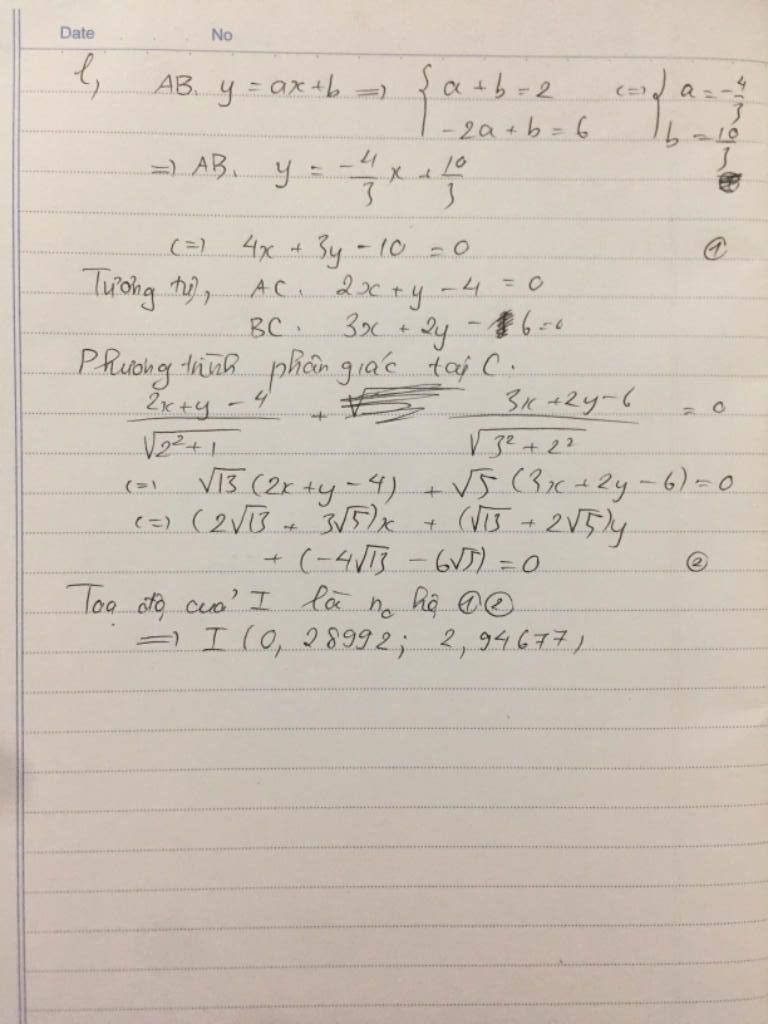 Date No
l, AB. y = ax+b => { a + b = 2 <=> { a = -4/3
-2a + b = 6 b = 10/3
=> AB. y = -4/3 x + 10/3
<=> 4x + 3y - 10 = 0 ①
Tương tự, AC. 2x + y - 4 = 0
BC. 3x + 2y - 6 = 0
Phương trình phân giác tại C.
(2x+y-4)/√(2²+1) + (3x+2y-6)/√(3²+2²) = 0
<=> √13 (2x+y-4) + √5 (3x+2y-6) = 0
<=> (2√13 + 3√5)x + (√13 + 2√5)y
+ (-4√13 - 6√5) = 0 ②
Toạ độ của I là no hệ ①②
=> I (0, 28992; 2, 94677)